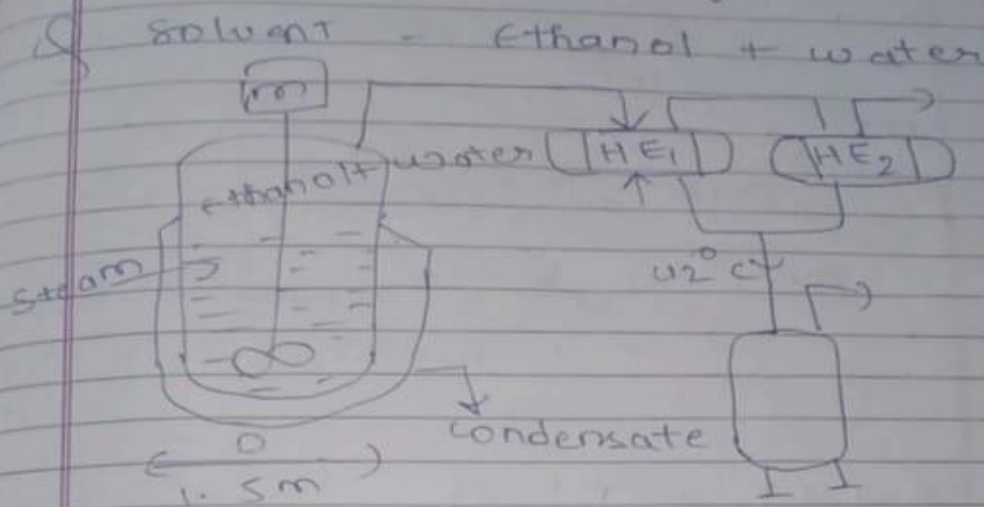 Q Solvent - Ethanol + water
m
ethanol + water
HE1
HE2
Steam
42°C
condensate
D
1.5m